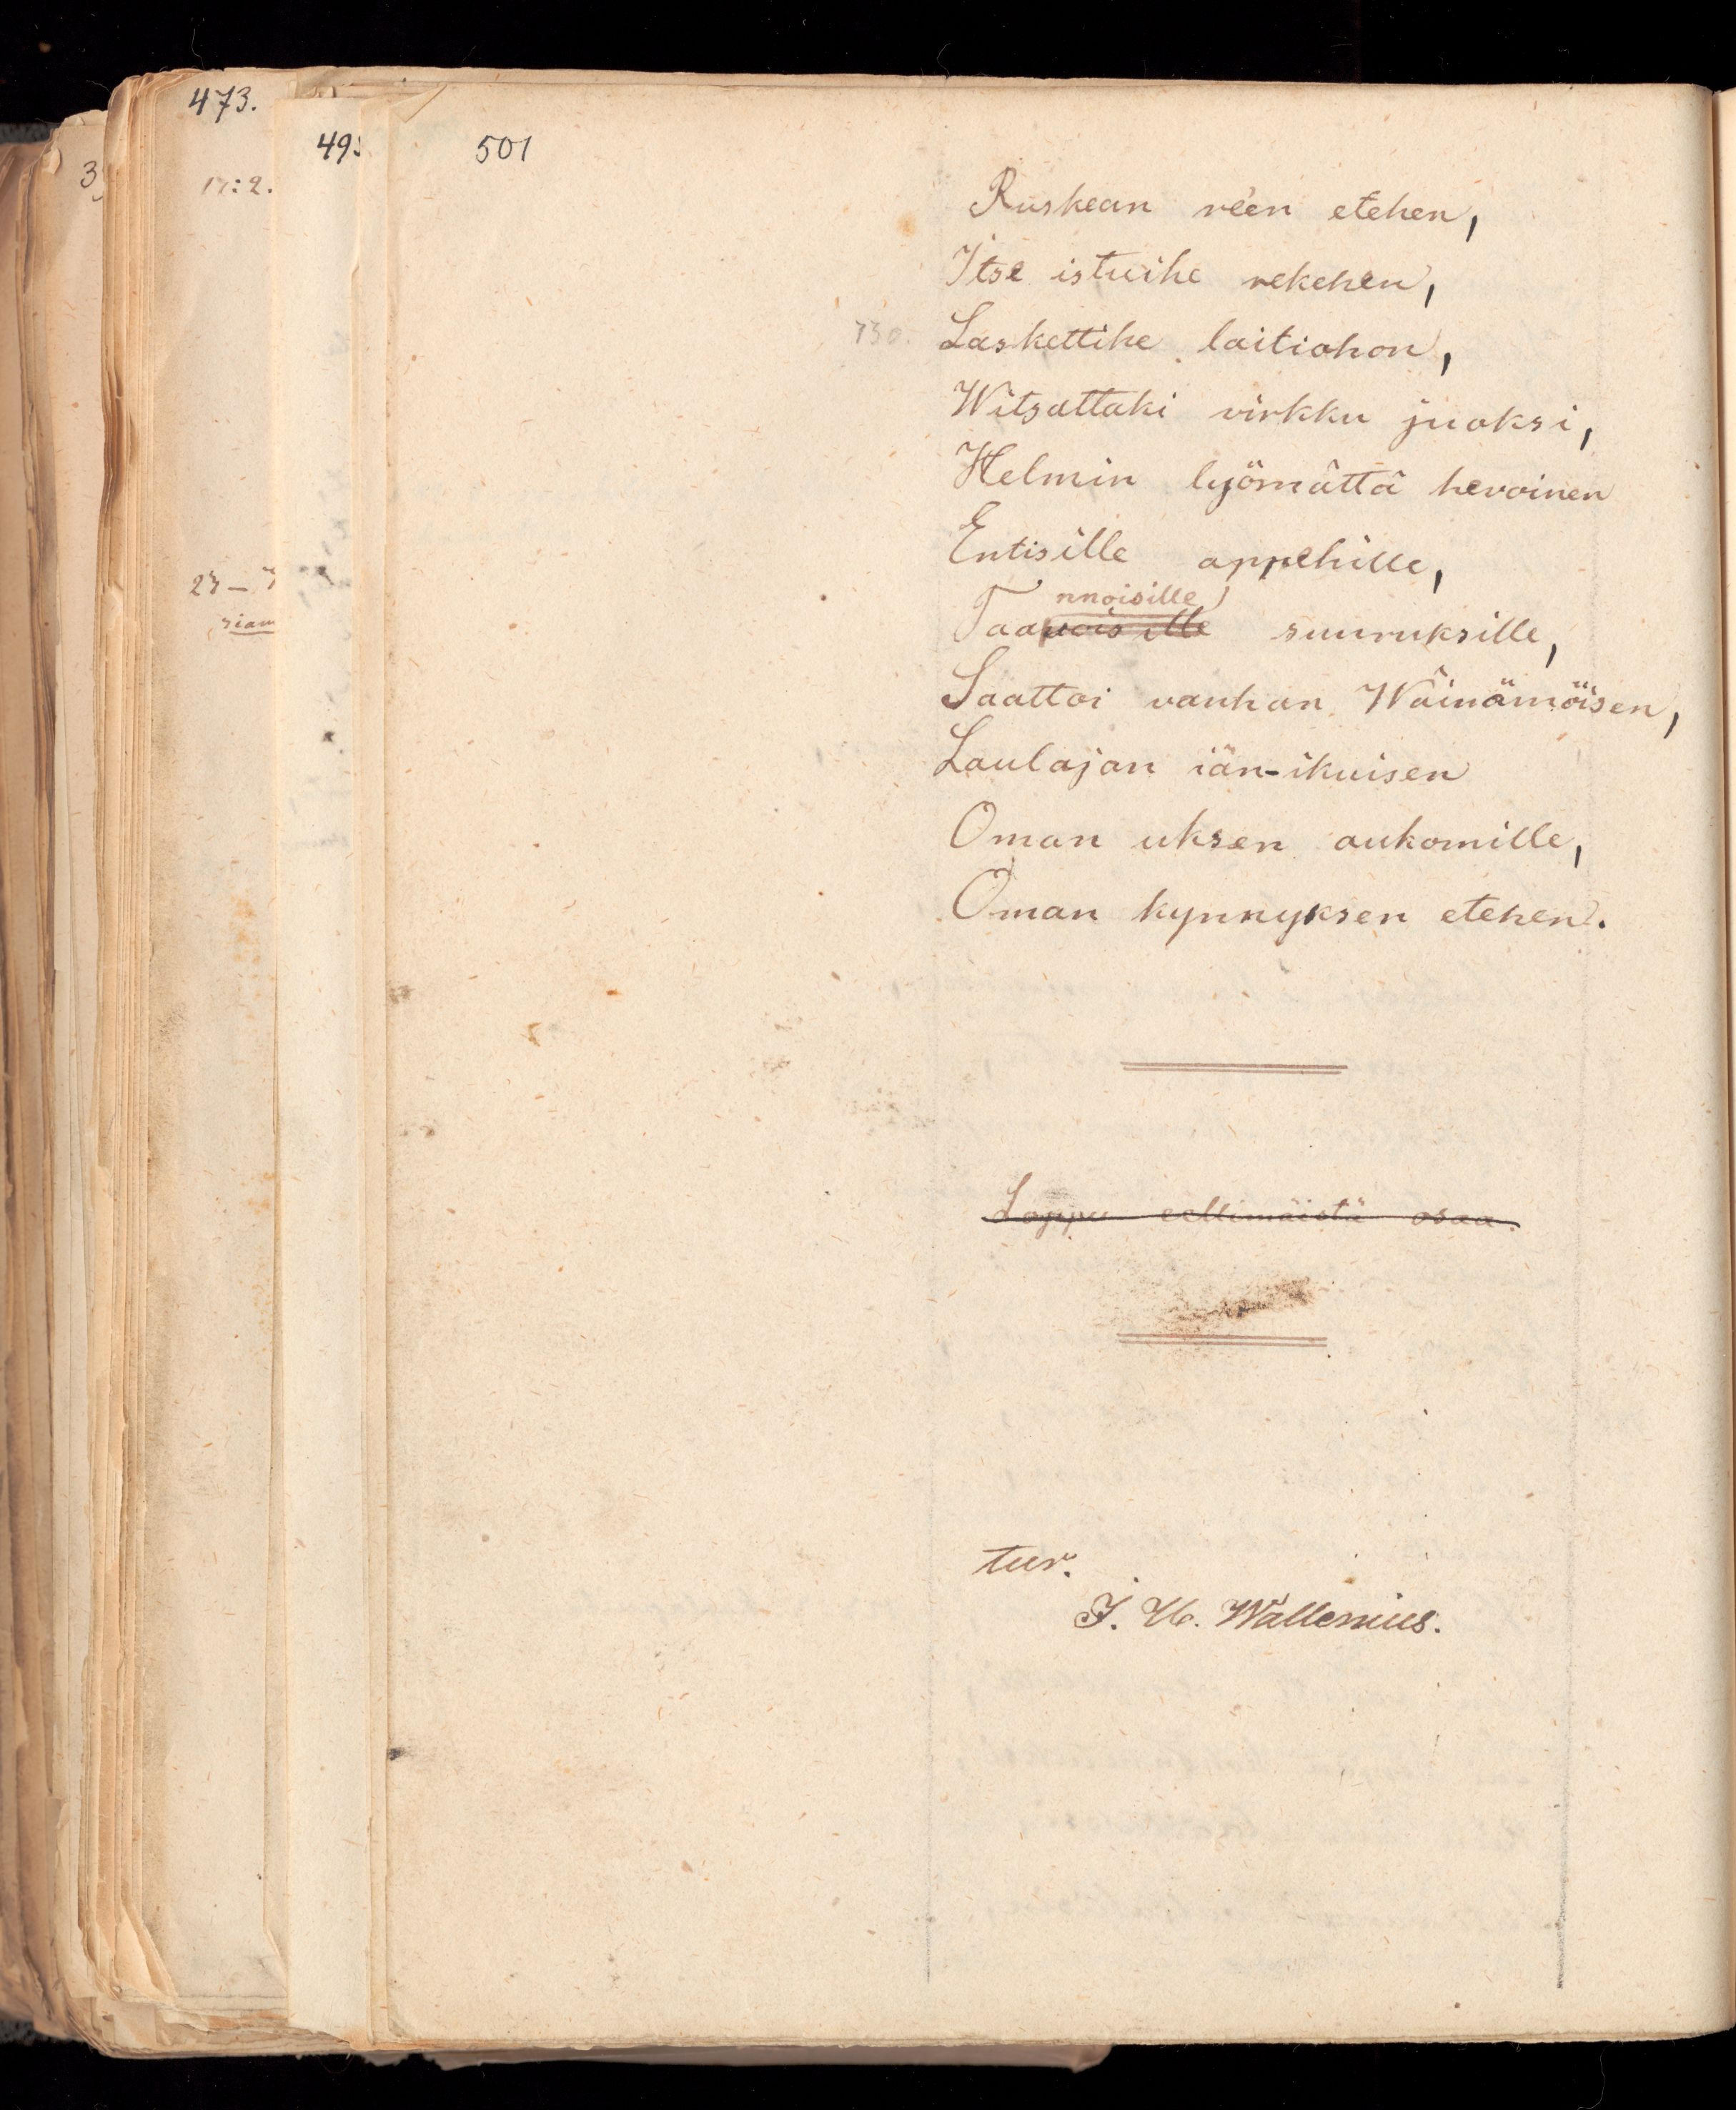 473.
49
501
3
17:2.
Ruskean re'en etehen,
Itse istuihe rekehen,
730. Laskettihe laitiohon,
Witsattaki virkku juoksi,
Helmin lyömättä hevoinen
Entisille appehille,
nnoisille
Taavoisille suuruksille,
23 –
siam
Saattoi vanhan Wäinämöisen,
Laulajan iän-ikuisen
Oman uksen aukomille,
Oman kynnyksen etehen.
Loppu ellimäistä osaa.
tur.
J. H. Wallenius.